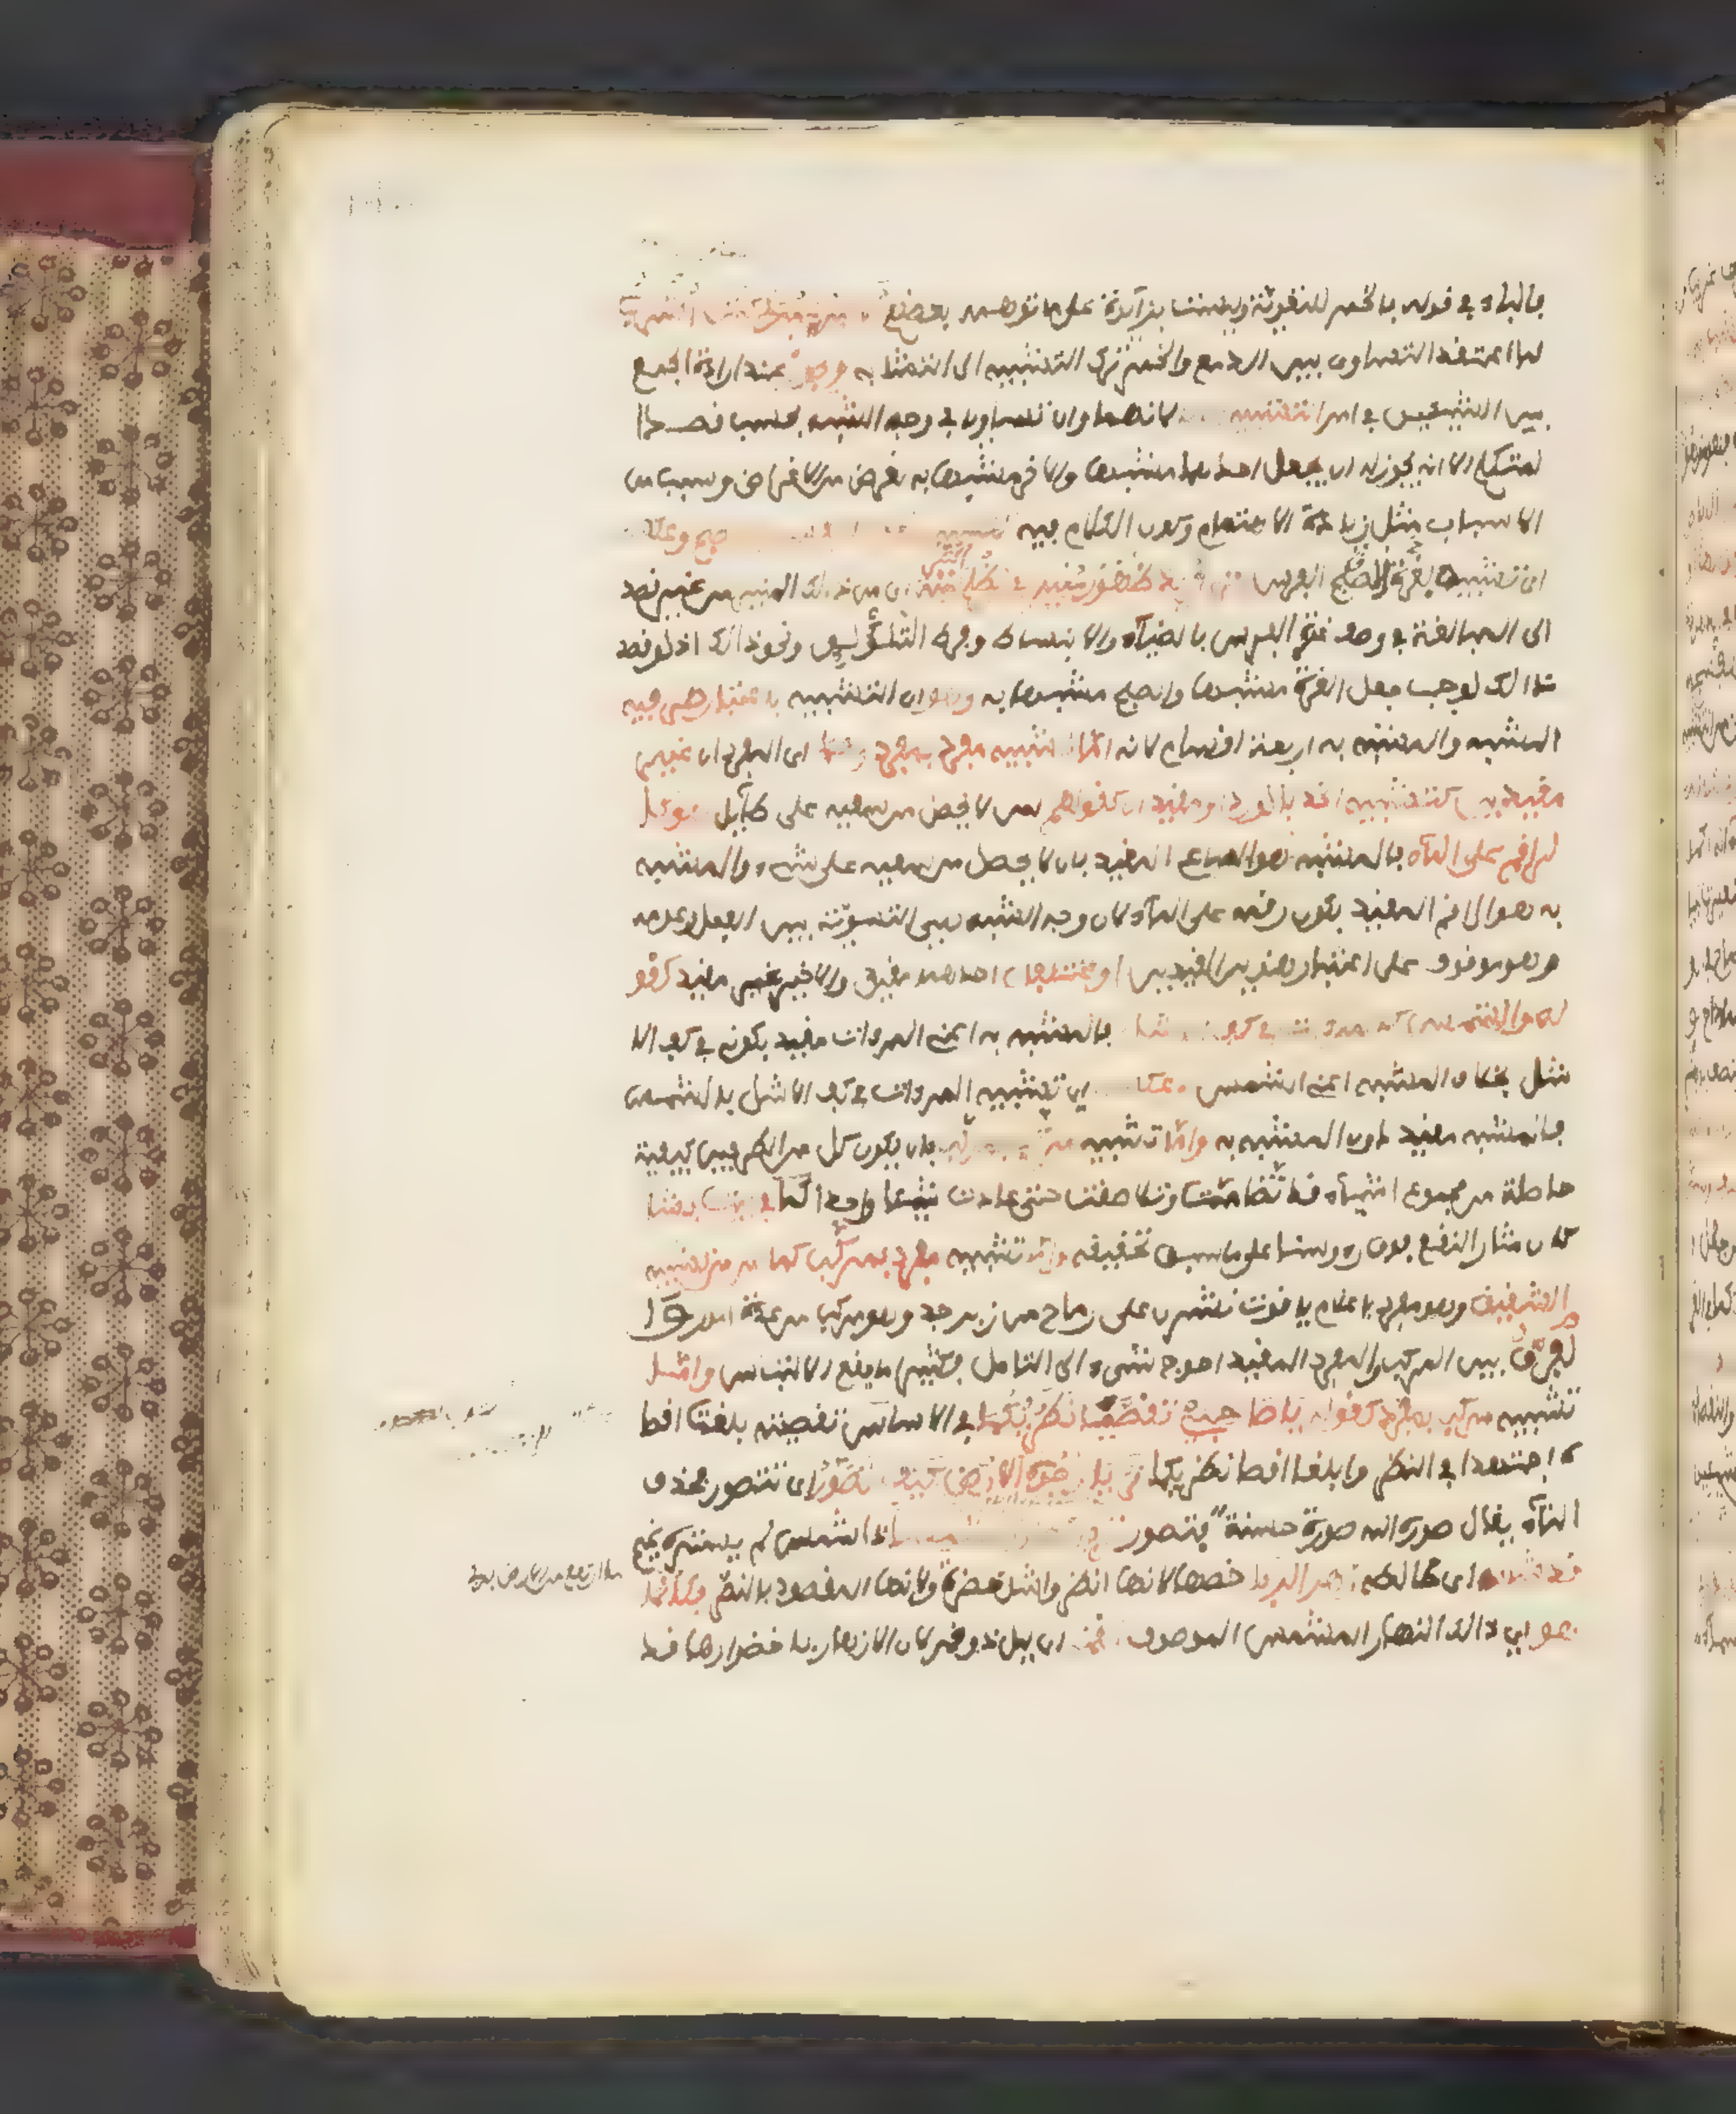 فالباء في قوله بالخمر للتعدية وليست بزائدة على ما توهمه بعضهم
لما اعتقد التساوي بين الدمع والخمر ترك التشبيه الى التشابه ويجوز عند ارادة الجمع
بين الشيئين في امر التشبيه لانهما وان تساويا في وجه الشبه بحسب قصد
المتكلم الا انه يجوز له ان يجعل احدهما مشبها والاخر مشبها به لغرض من الاغراض وسبب من
الاسباب مثل زيادة الاهتمام وكون الكلام فيه كتشبيه وعكسه
اي تشبيه الصبح بغرة الفرس متى اريد ظهور منير في مظلم اكثر منه اي من ذلك المنير من غير قصد
الى المبالغة في وصف غرة الفرس بالضياء والانبساط وفرط التلألؤ ونحو ذالك اذ لو قصد
ذالك لوجب جعل الغرة مشبها والصبح مشبها به وهو اي التشبيه باعتبار طرفيه
المشبه والمشبه به اربعة اقسام لانه اما تشبيه مفرد بمفرد وهما اي المفردان غير
مقيدين كتشبيه الخد بالورد او مقيدان كقولهم لمن لا يحصل من سعيه على طائل هو كا
لراقم على الماء فالمشبه هو الساعي المقيد بان لا يحصل من سعيه على شيء والمشبه
به هو الراقم المقيد بكون رقمه على الماء لان وجه الشبه هي التسوية بين الفعل وعدمه
وهو موقوف على اعتبار هذين القيدين او مختلفان احدهما مقيد والاخر غير مقيد كقو
له والشمس كالمرءات في كف الاشل فالمشبه به اعني المرءات مقيد بكونه في كف الا
شل بخلاف المشبه اعني الشمس وعكسه اي تشبيه المرءات في كف الاشل بالشمس
فالمشبه مقيد دون المشبه به واما تشبيه مركب بمركب بان يكون كل من الطرفين كيفية
حاصلة من مجموع اشياء قد تضامت وتلاصقت حتى عادت شيئا واحدا كما في بيت بشار
كان مثار النقع فوق رءوسنا على ما سبق تحقيقه واما تشبيه مفرد بمركب كما مر من تشبيه
الشقيق وهو مفرد باعلام ياقوت نشرن على رماح من زبرجد وهو مركب من عدة امور وا
لفرق بين المركب والمفرد المقيد احوج شيء الى التامل فكثيرا ما يقع الالتباس واما
تشبيه مركب بمفرد كقوله يا صاحبي تقصيا نظريكما في الاساس تقصيته بلغت اقصا
ه اجتهدا في النظر وابلغا اقصا نظريكما تريا وجوه الارض كيف تصور اي تتصور بحذف
التاء يقال صوره الله صورة حسنة فتصور تريا نهارا مشمسا ذا شمس لم يستره غيم
قد شابه اي خالطه زهر الربا خصها لانها انظر واشد خضرة ولانها المقصود بالنظر فكانما
هو اي ذالك النهار المشمس الموصوف مقمر اي ليل ذو قمر لان الازهار باخضرارها قد